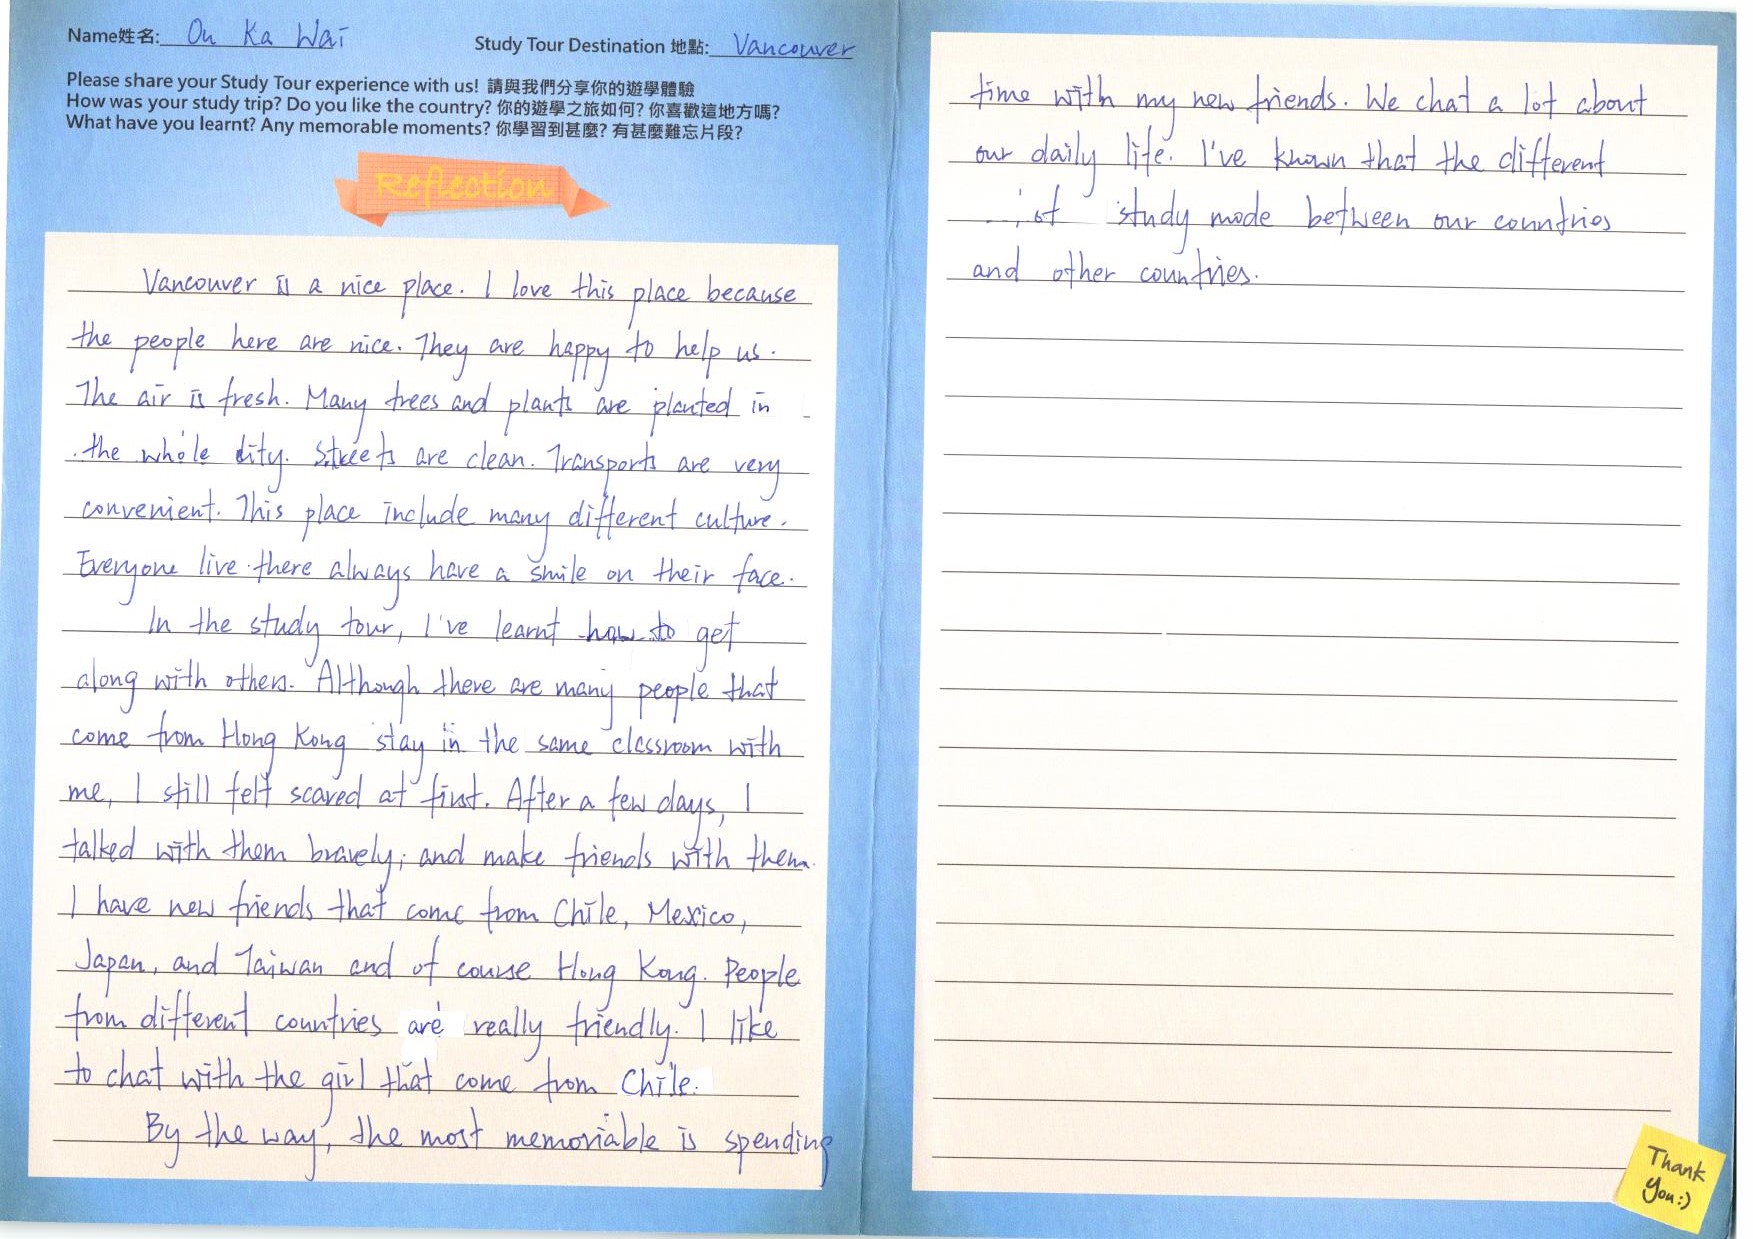 Name姓名: Ou Ka Wai
Study Tour Destination 地點: Vancouver
Please share your Study Tour experience with us! 請與我們分享你的遊學體驗
How was your study trip? Do you like the country? 你的遊學之旅如何? 你喜歡這地方嗎?
What have you learnt? Any memorable moments? 你學習到甚麼? 有甚麼難忘片段?
Reflection
Vancouver is a nice place. I love this place because
the people here are nice. They are happy to help us.
The air is fresh. Many trees and plants are planted in
the whole city. Streets are clean. Transports are very
convenient. This place include many different culture.
Everyone live there always have a smile on their face.
In the study tour, I've learnt how to get
along with others. Although there are many people that
come from Hong Kong stay in the same classroom with
me, I still felt scared at first. After a few days, I
talked with them bravely, and make friends with them.
I have new friends that come from Chile, Mexico,
Japan, and Taiwan and of course Hong Kong. People
from different countries are really friendly. I like
to chat with the girl that come from Chile.
By the way, the most memoriable is spending
time with my new friends. We chat a lot about
our daily life. I've known that the different
of study mode between our countries
and other countries.
Thank
You:)